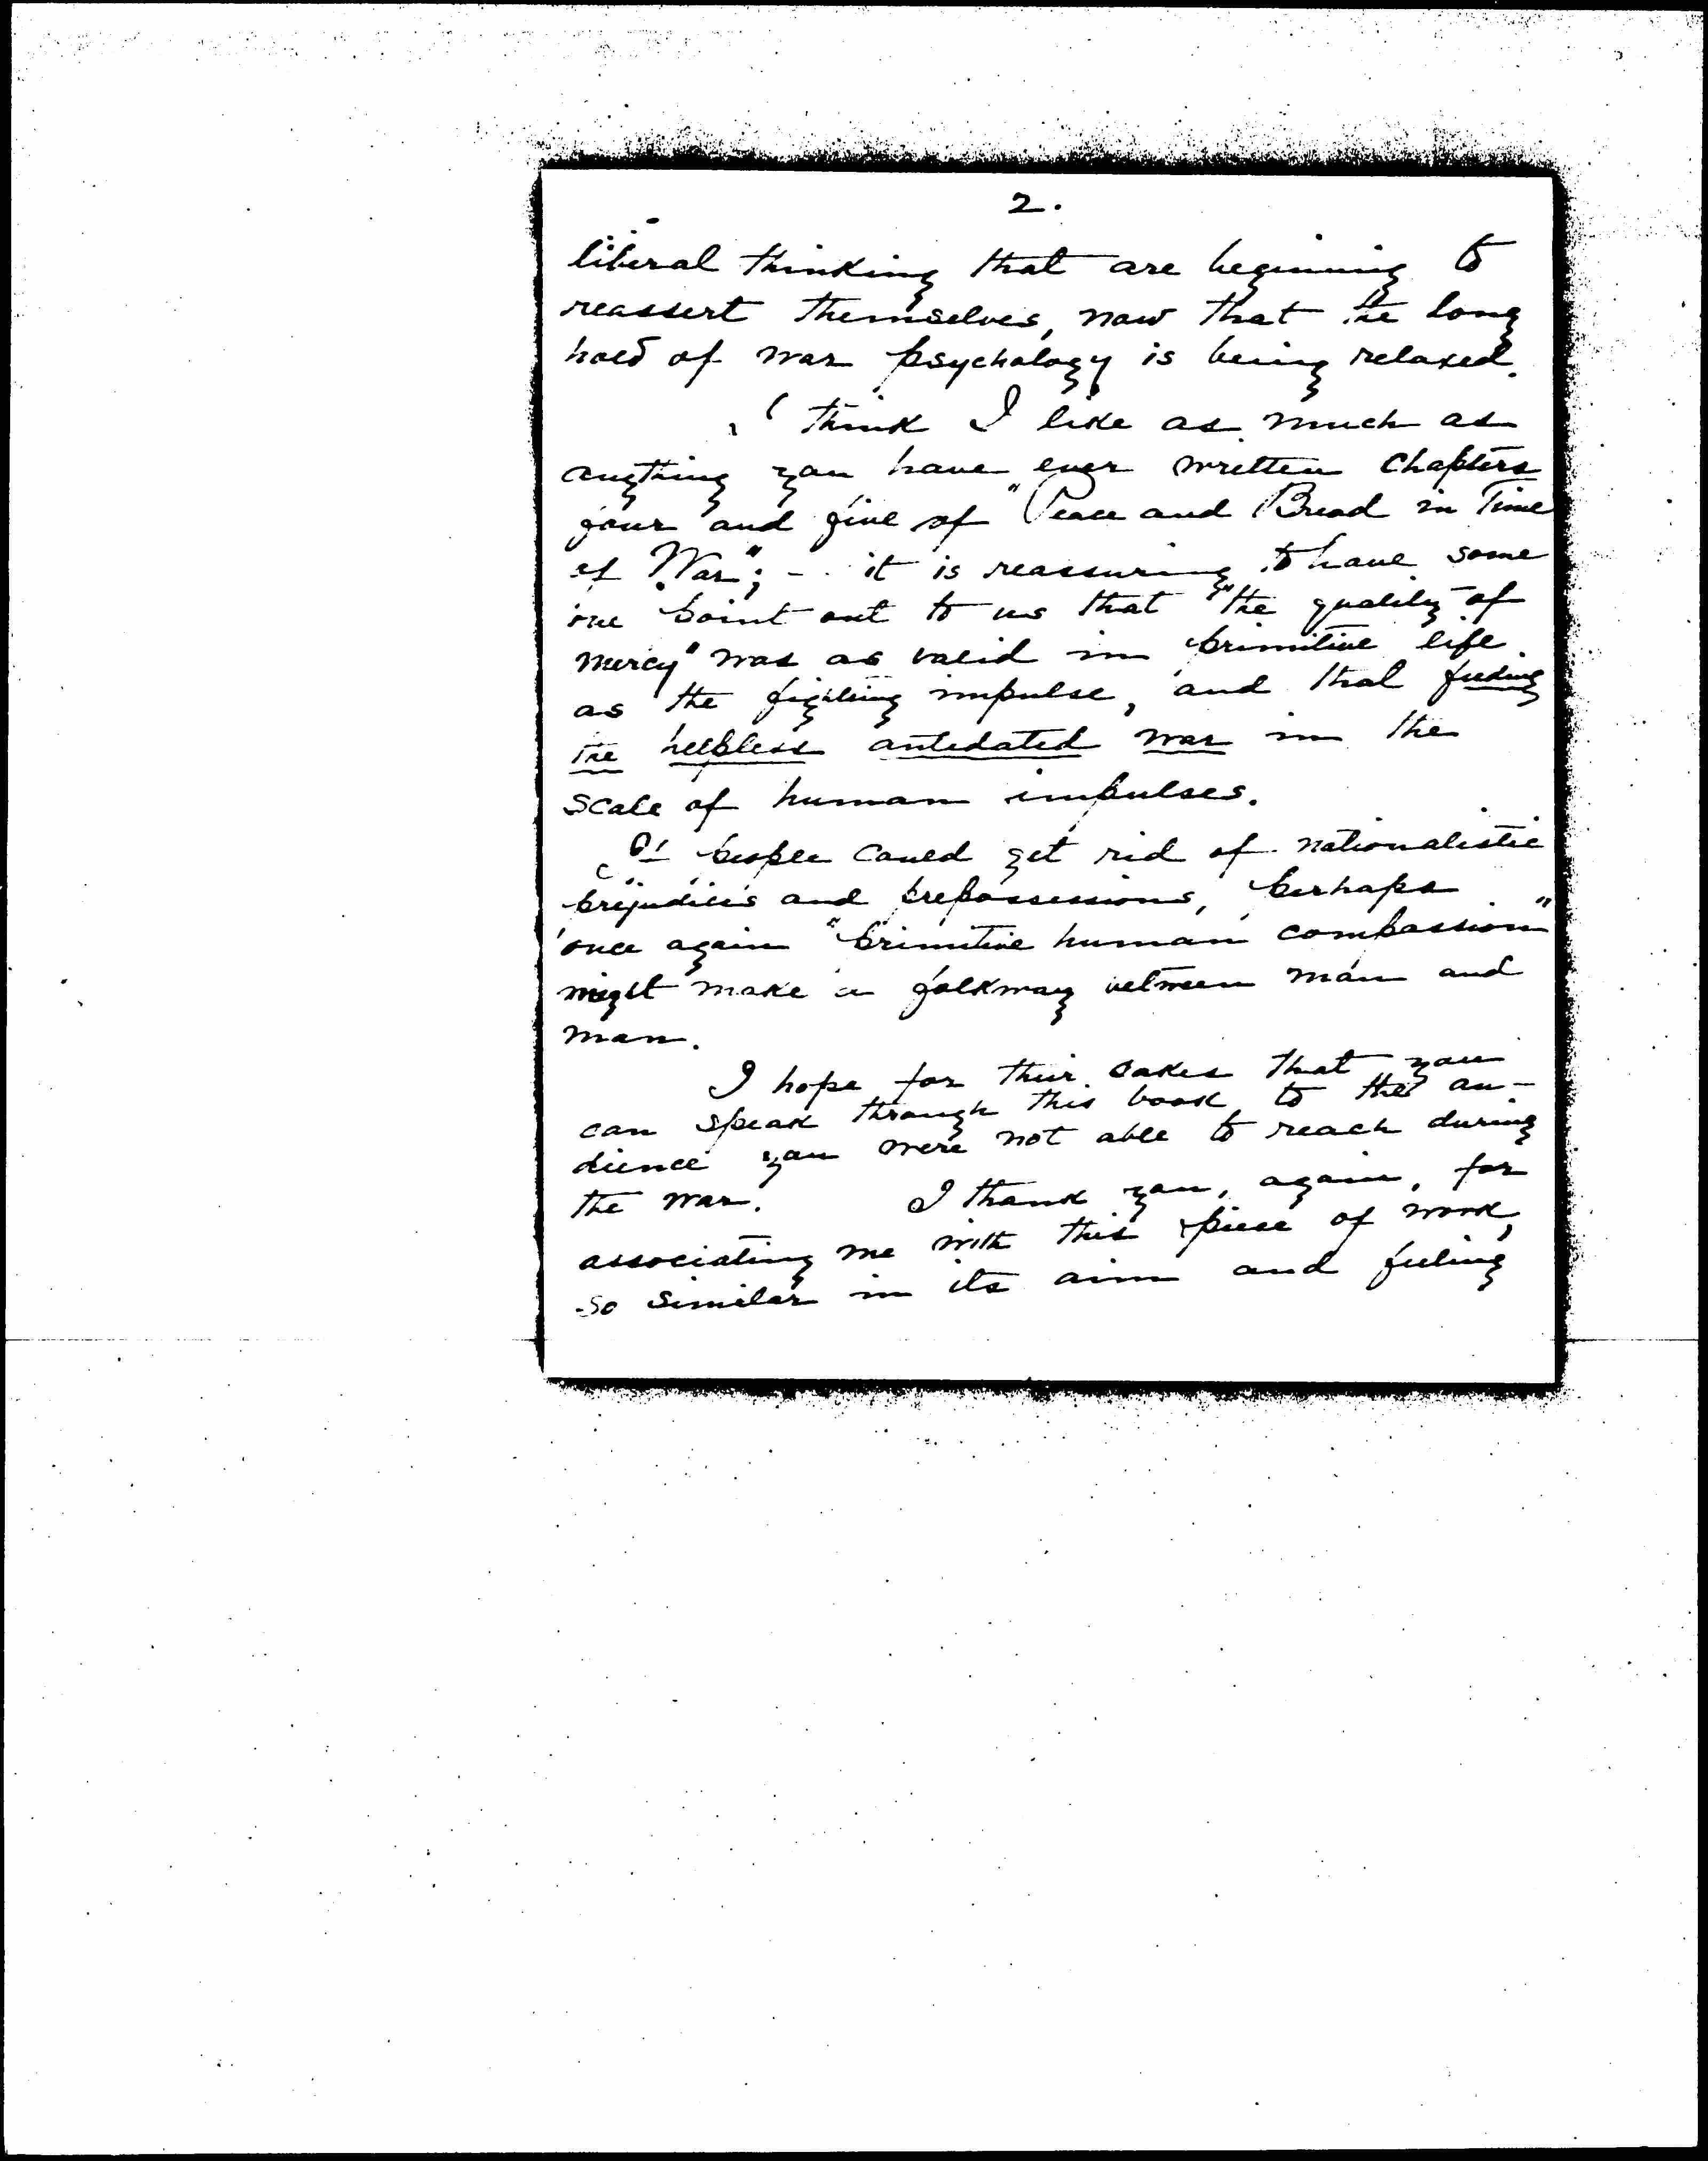 2.
liberal thinking that are beginning to
reassert themselves, now that the long
hold of war psychology is being relaxed.
I think I like as much as
anything you have ever written chapters
four and five of "Peace and Bread in Time
of War"; - it is reassuring to have some
one point out to us that "the quality of
mercy" was as valid in primitive life
as the fighting impulse, and that feeding
the helpless antedated war in the
scale of human impulses.
If people could get rid of nationalistic
prejudices and prepossessions, perhaps
once again "primitive human compassion"
might make a folkway between man and
man.
I hope for their sakes that you
can speak through this book to the au-
dience you were not able to reach during
the war. I thank you, again, for
associating me with this piece of work,
so similar in its aim and feeling